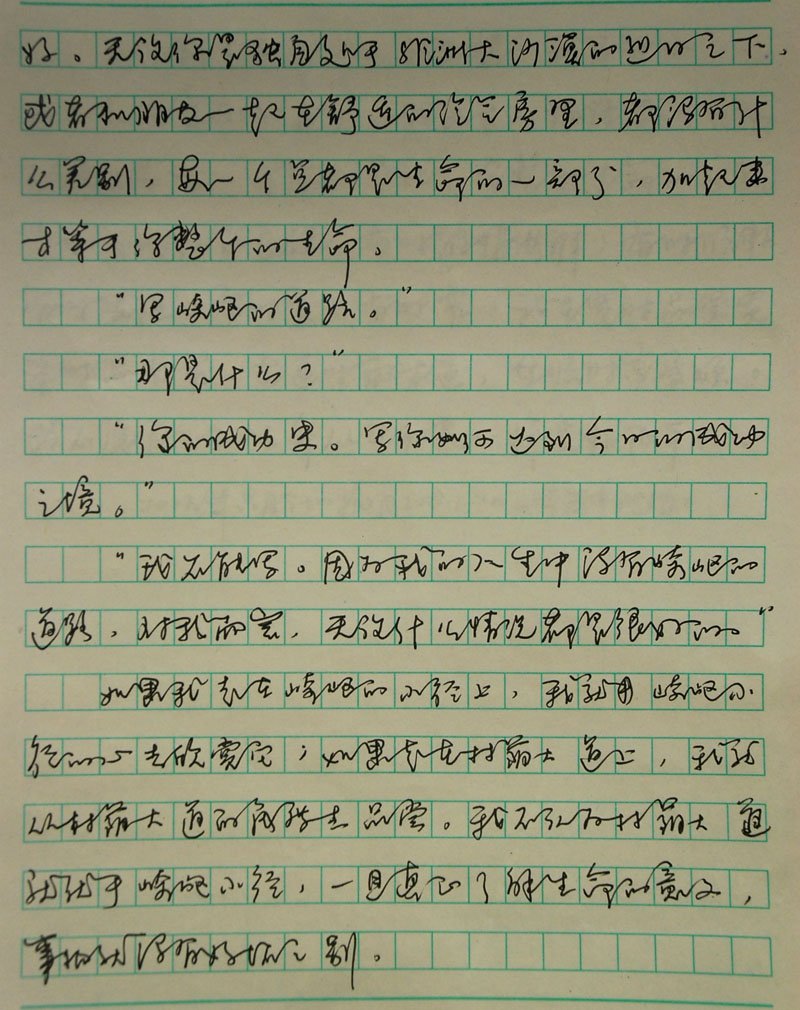 好。无论你是独自处于非洲大沙漠的烈日之下，
或者和朋友一起在舒适的冷气房里，都没有什
么差别，每一个足都是生命的一部分，加起来
才等于你整个的生命。
“写崎岖的道路。”
“那是什么？”
“你的成功史。写你如何达到今日的成功
之境。”
“我不能写。因为我的人生中没有崎岖的
道路，对我而言，无论什么情况都是很好的。”
如果我走在崎岖的小径上，我就用崎岖小
径的心去欣赏它；如果走在林荫大道上，我就
从林荫大道的角度去品尝。我不认为林荫大道
就优于崎岖小径，一旦真正了解生命的意义，
事物就没有好坏之别。